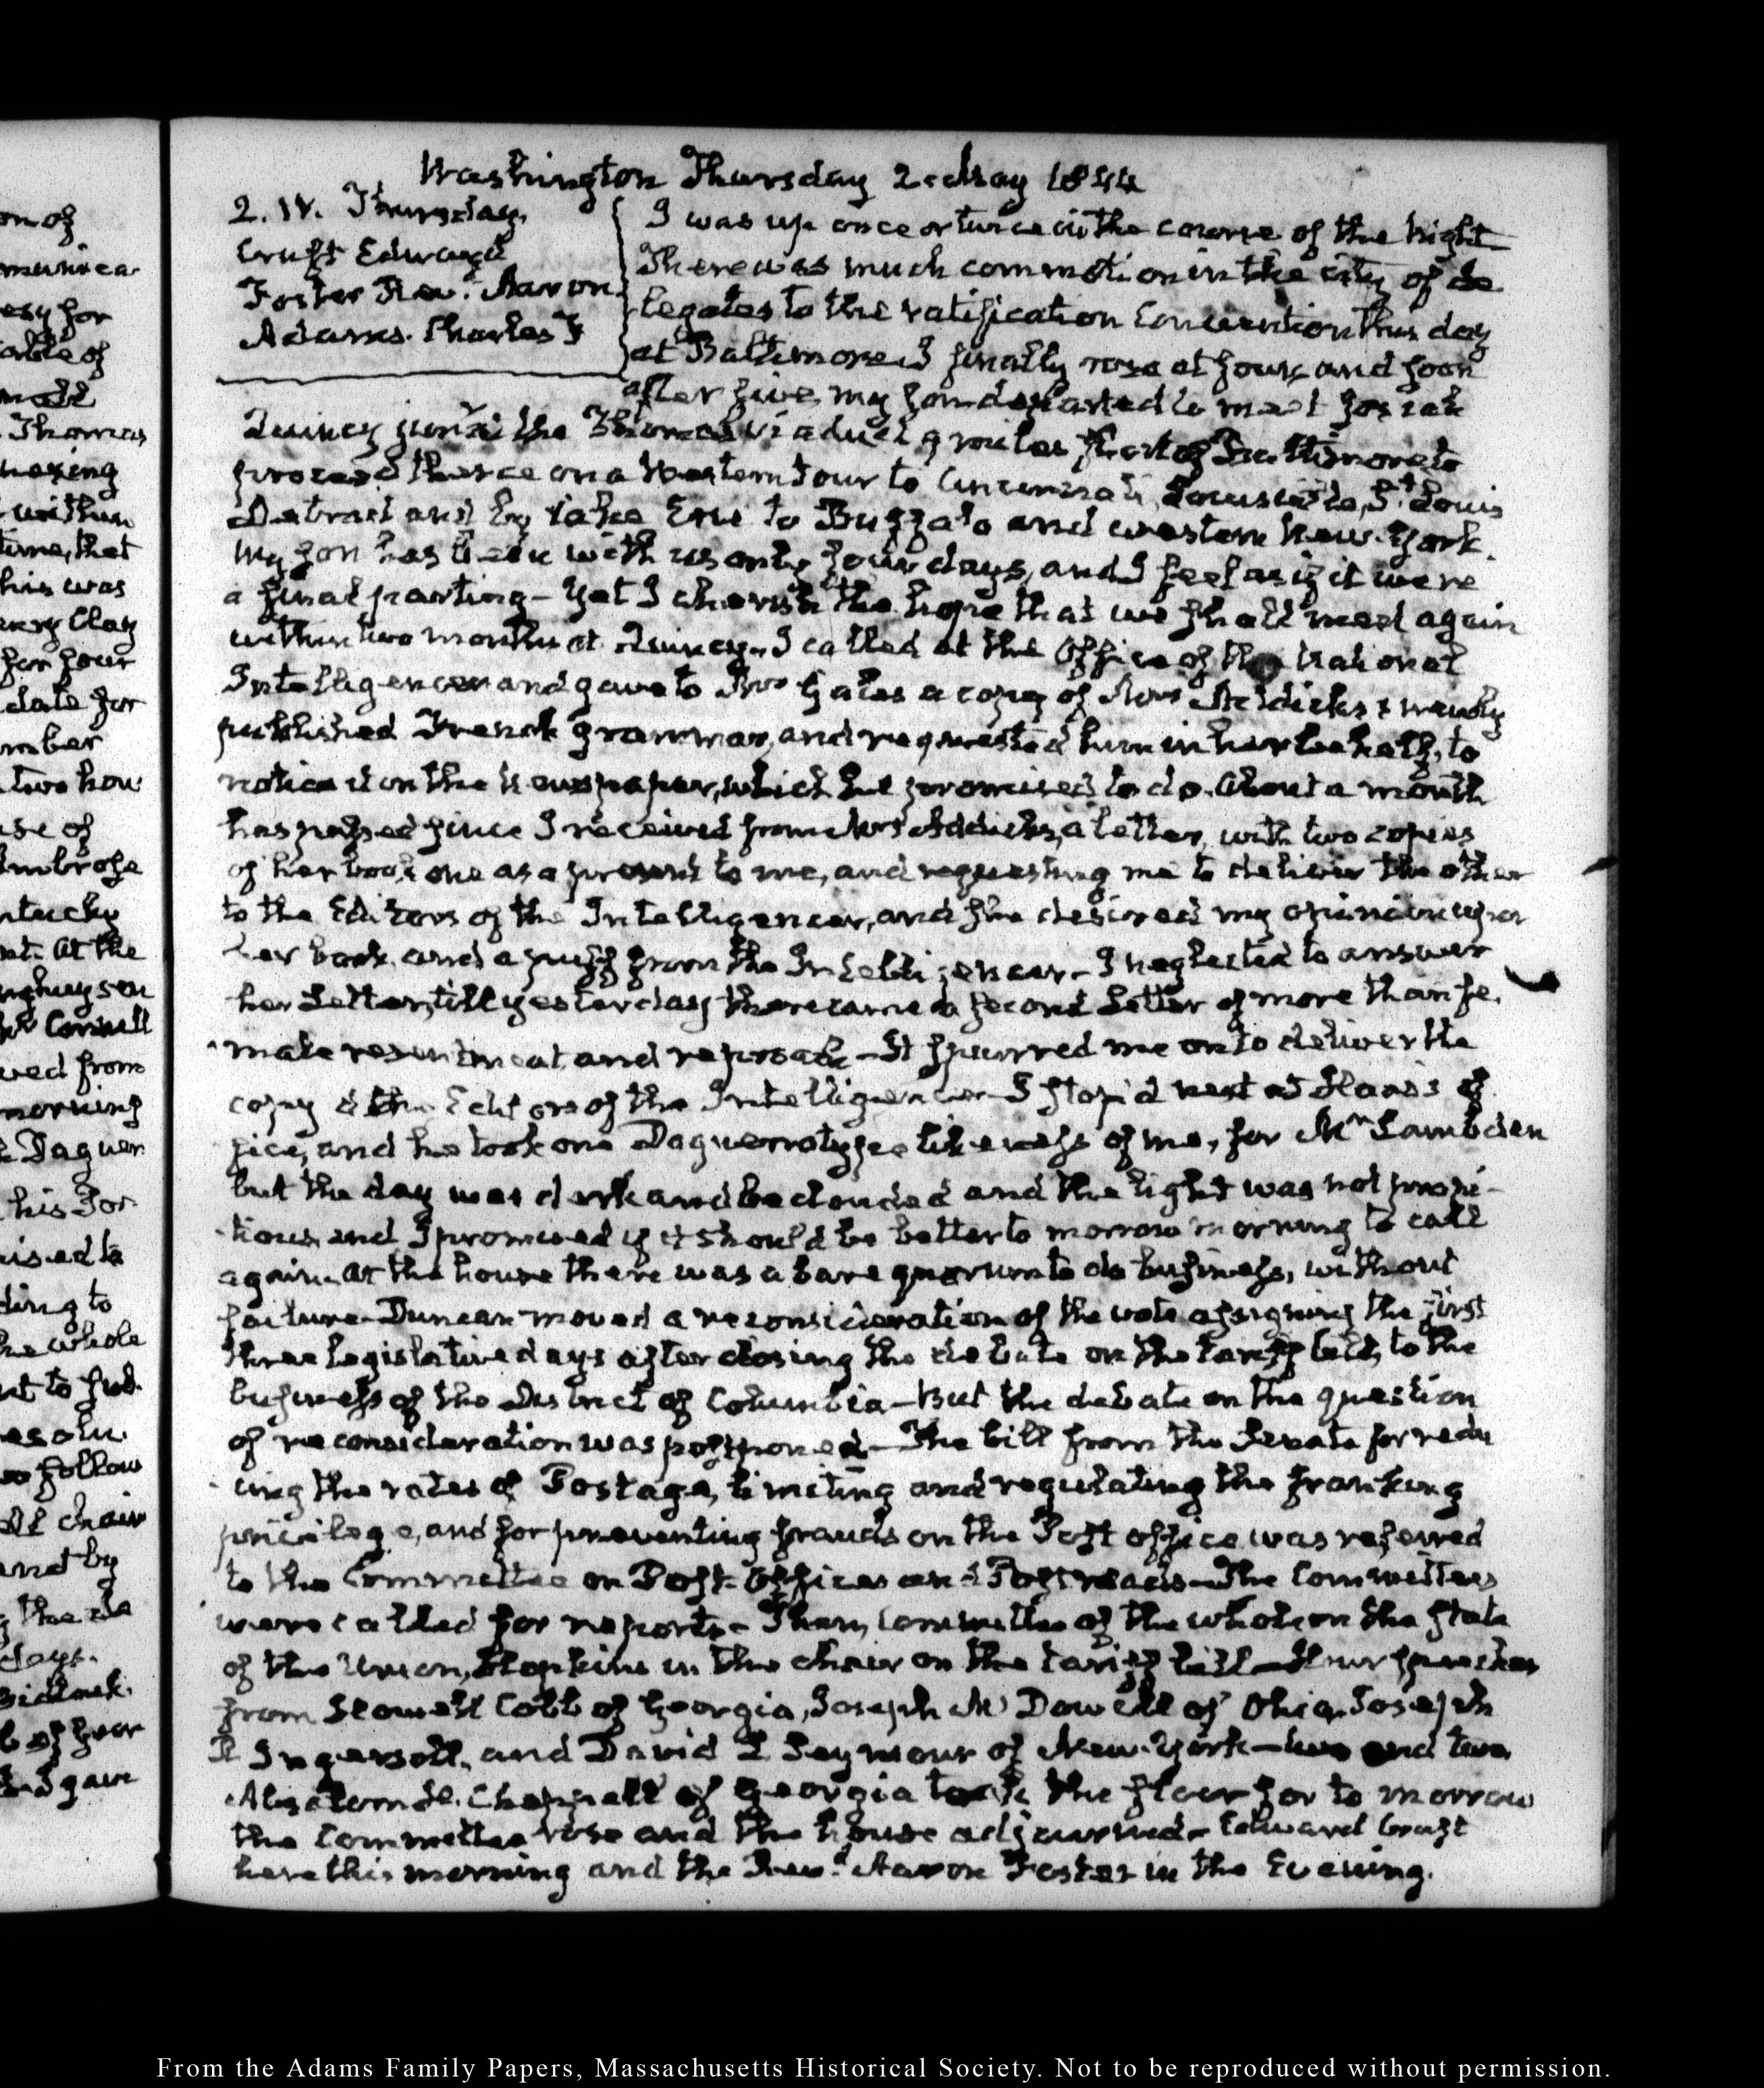 Washington Thursday 2. May 1844
2. IV. Thursday.
Cruft Edward
Foster Revd. Aaron
Adams. Charles F
I was up once or twice in the course of the night
There was much commotion in the city of de
legates to the ratification Convention this day
at Baltimore. I finally rose at four, and soon
after five, my son departed to meet Josiah
Quincy junr. at the Thomas viaduct 9 miles short of Baltimore to
proceed thence on a Western tour to Cincinnati, Louisville, St. Louis
Detroit and by lake Erie to Buffalo and western New-York.
My son has been with us only four days, and I feel as if it were
a final parting— Yet I cherish the hope that we shall meet again
within two months at Quincy. I called at the Office of the National
Intelligencer and gave to Mr Gales a copy of Mrs Addicks's newly
published French grammar, and requested him in her behalf, to
notice it on the newspaper, which he promised to do. About a month
has passed since I received from Mrs Addicks, a letter, with two copies
of her book one as a present to me, and requesting me to deliver the other
to the Editors of the Intelligencer, and she desired my opinion upon
her book, and a puff from the Intelligencer— I neglected to answer
her Letter, till yesterday there came a second Letter of more than fe-
male resentment and reproach— It spurred me on to deliver the
copy to the Editors of the Intelligencer— I stop'd next at Haas's of-
fice, and he took one Daguerrotype likeness of me, for Mr Lambden
but the day was dark and beclouded and the light was not propi-
tious and I promised if it should be better to morrow morning to call
again. At the house there was a bare quorum to do business, without
failure— Duncan moved a reconsideration of the vote assigning the first
three legislative days after closing the debate on the tariff bill, to the
business of the District of Columbia— But the debate on the question
of reconsideration was postponed— The bill from the Senate for redu
cing the rates of Postage, limiting and regulating the franking
privilege, and for preventing frauds on the Post office was referred
to the Committee on Post-Offices and Post roads— The Committees
were called for reports— Then, committee of the whole on the state
of the Union, Hopkins in the chair on the tariff bill— hour speeches
from Howell Cobb of Georgia, Joseph Mc Dowell of Ohio, Joseph
R Ingersoll, and David L Seymour of New-York— two and two.
Absalom H. Chappell of Georgia took the floor for to morrow
the Committee rose and the house adjourned— Edward Cruft
here this morning and the Revd. Aaron Foster in the Evening.
From the Adams Family Papers, Massachusetts Historical Society. Not to be reproduced without permission.